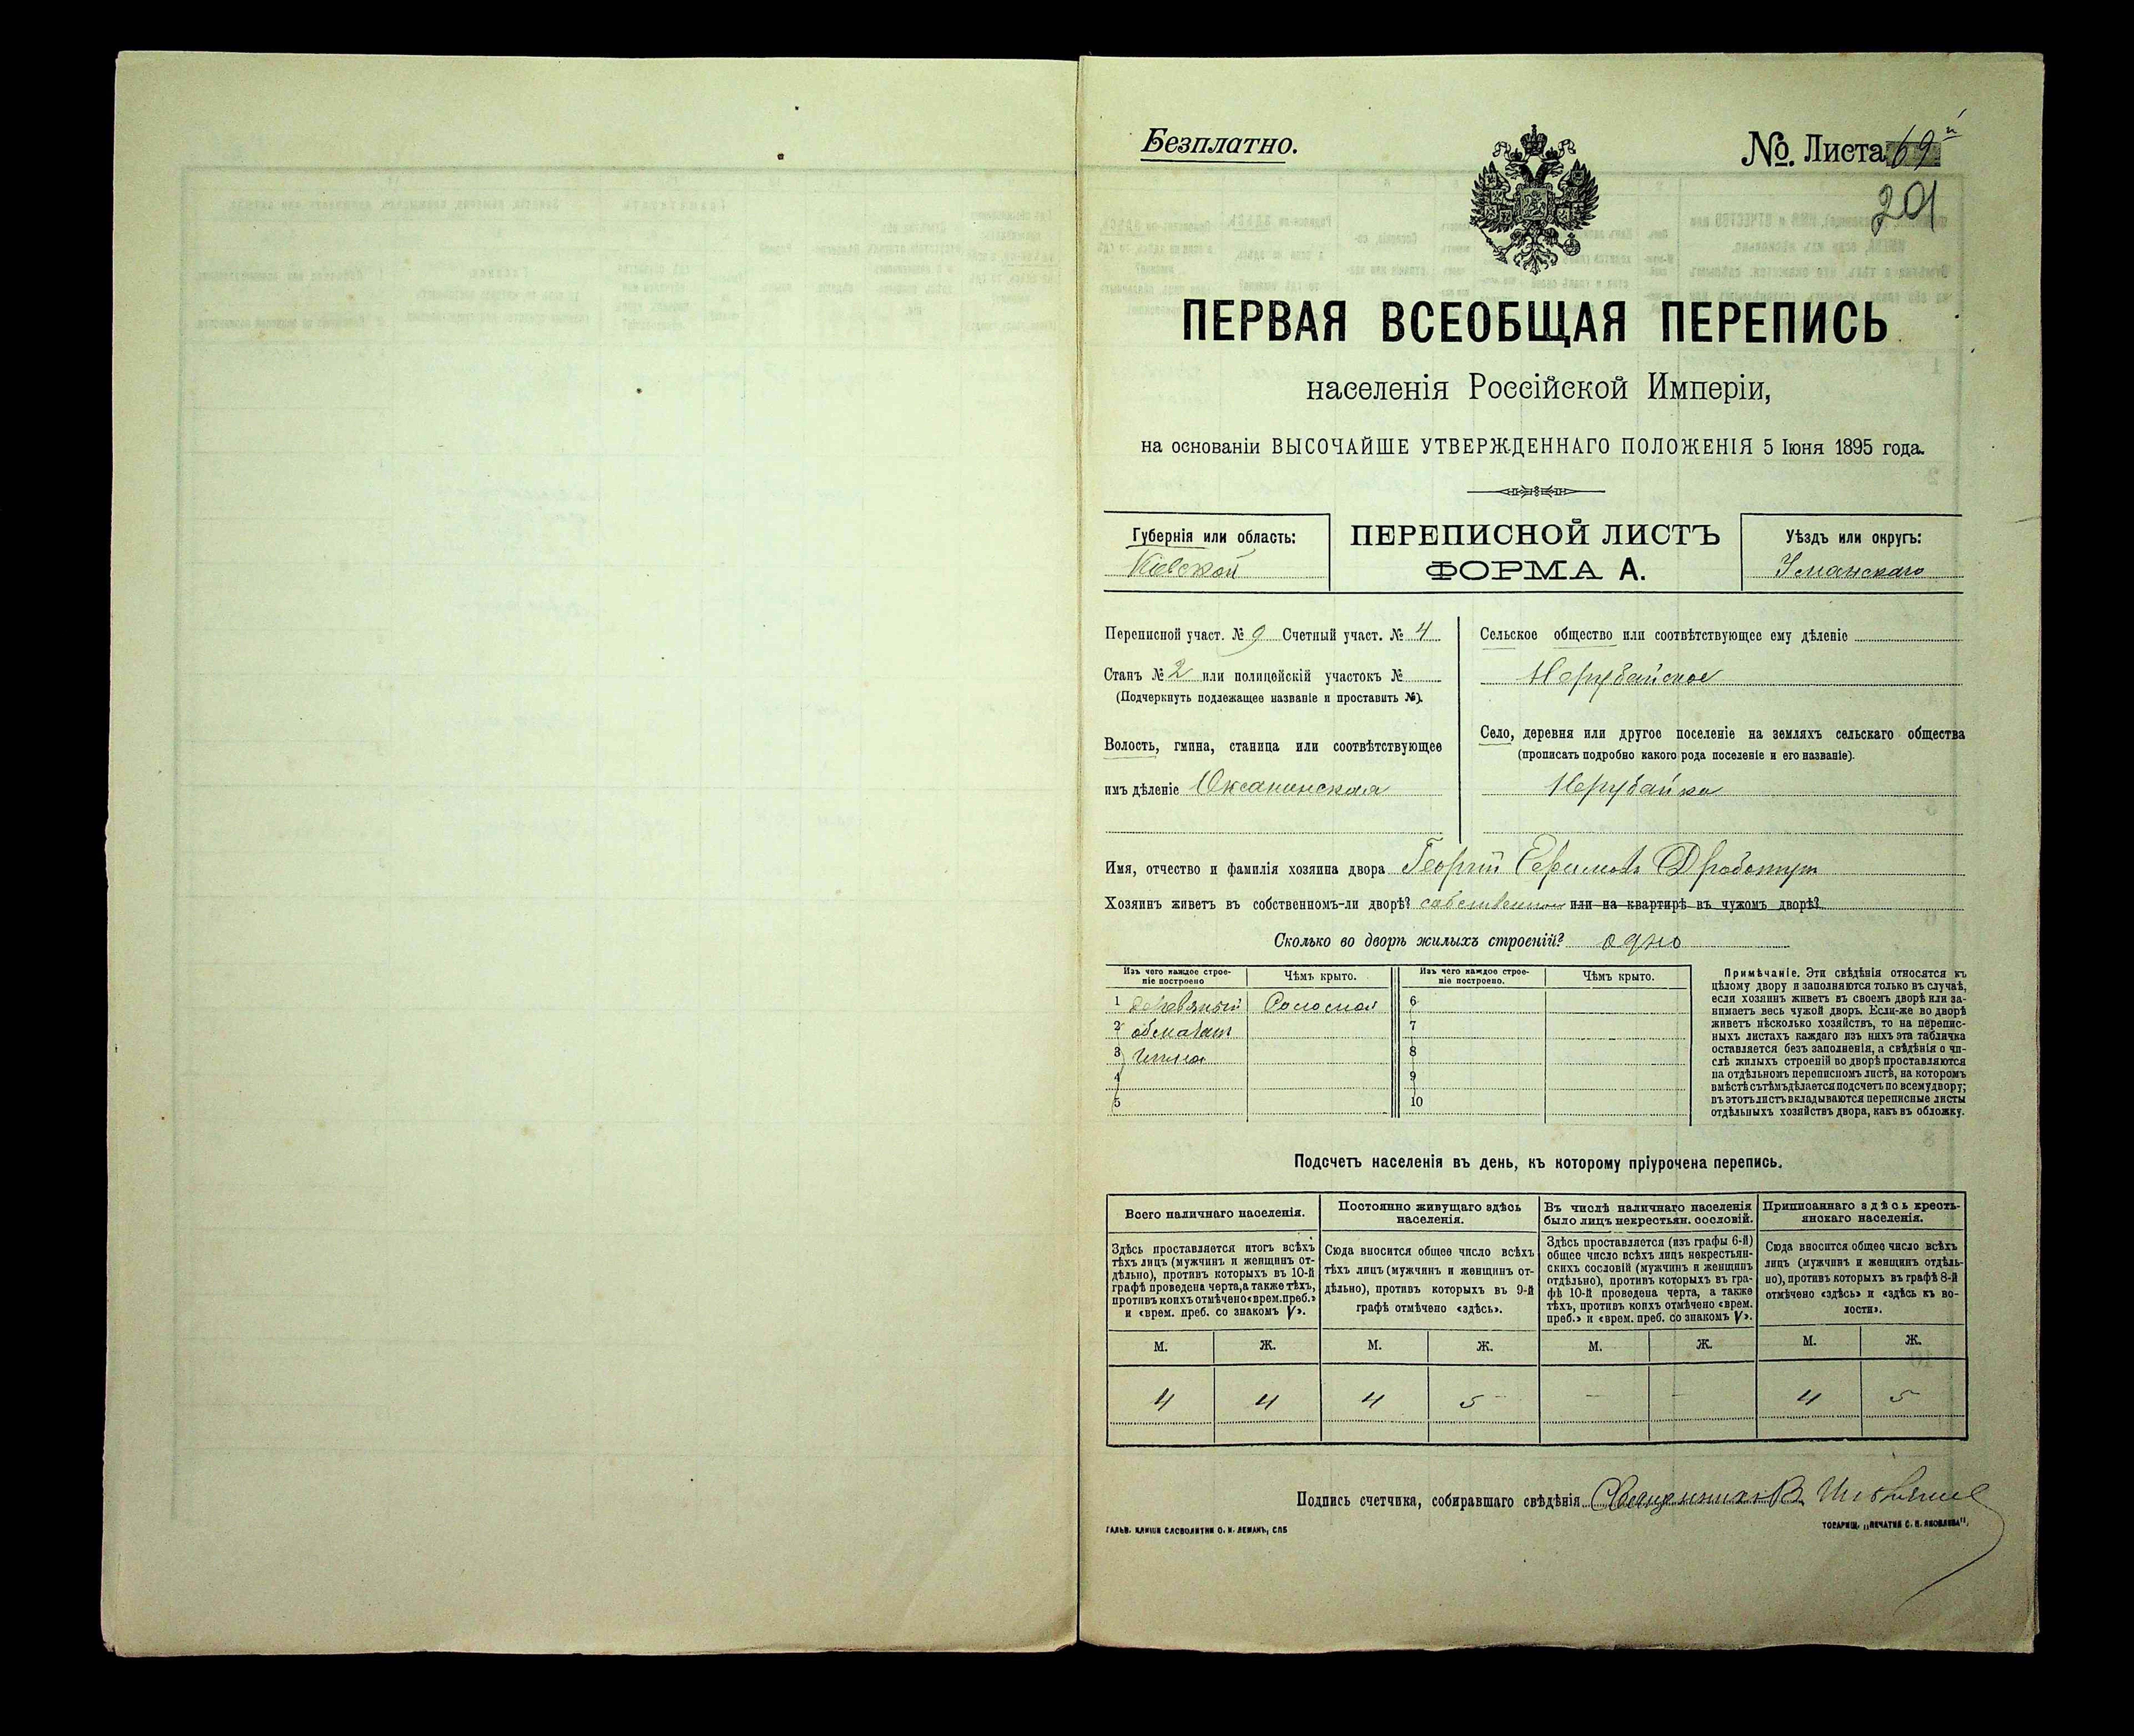 Безплатно.
№. Листа 69й
201
ПЕРВАЯ ВСЕОБЩАЯ ПЕРЕПИСЬ
населенія Россійской Имперіи,
на основаніи ВЫСОЧАЙШЕ УТВЕРЖДЕННАГО ПОЛОЖЕНІЯ 5 Іюня 1895 года.
Губернія или область:
Кіевской
ПЕРЕПИСНОЙ ЛИСТЪ
ФОРМА А.
Уѣздъ или округъ:
Уманскаго
Переписной участ. № 9 Счетный участ. № 4
Станъ № 2 или полицейскій участокъ №
(Подчеркнуть подлежащее названіе и проставить №).
Волость, гмина, станица или соотвѣтствующее
имъ дѣленіе Оксанинская
Сельское общество или соотвѣтствующее ему дѣленіе
Нерубайское
Село, деревня или другое поселеніе на земляхъ сельскаго общества
(прописать подробно какого рода поселеніе и его названіе).
Нерубайка
Имя, отчество и фамилія хозяина двора Георгій Ефимовъ
Хозяинъ живетъ въ собственномъ-ли дворѣ? собственном или на квартирѣ въ чужомъ дворѣ?
Сколько во дворѣ жилыхъ строеній? одно
Изъ чего каждое строе-
ніе построено
Чѣмъ крыто.
Изъ чего каждое строе-
ніе построено.
Чѣмъ крыто.
1 Соломой 6
2 7
3 глиной 8
4 9
5 10
Примѣчаніе. Эти свѣдѣнія относятся къ
цѣлому двору и заполняются только въ случаѣ,
если хозяинъ живетъ въ своемъ дворѣ или за-
нимаетъ весь чужой дворъ. Если-же во дворѣ
живетъ нѣсколько хозяйствъ, то на перепис-
ныхъ листахъ каждаго изъ нихъ эта табличка
оставляется безъ заполненія, а свѣдѣнія о чи-
слѣ жилыхъ строеній во дворѣ проставляются
на отдѣльномъ переписномъ листѣ, на которомъ
вмѣстѣ съ тѣмъ дѣлается подсчетъ по всему двору;
въ этотъ листъ вкладываются переписные листы
отдѣльныхъ хозяйствъ двора, какъ въ обложку.
Подсчетъ населенія въ день, къ которому пріурочена перепись.
Всего наличнаго населенія.
Здѣсь проставляется итогъ всѣхъ
тѣхъ лицъ (мужчинъ и женщинъ от-
дѣльно), противъ которыхъ въ 10-й
графѣ проведена черта, а также тѣхъ,
противъ коихъ отмѣчено «врем. преб.»
и «врем. преб. со знакомъ V».
Постоянно живущаго здѣсь
населенія.
Сюда вносится общее число всѣхъ
тѣхъ лицъ (мужчинъ и женщинъ от-
дѣльно), противъ которыхъ въ 9-й
графѣ отмѣчено «здѣсь».
Въ числѣ наличнаго населенія
было лицъ некрестьян. сословій.
Здѣсь проставляется (изъ графы 6-й)
общее число всѣхъ лицъ некрестьян-
скихъ сословій (мужчинъ и женщинъ
отдѣльно), противъ которыхъ въ гра-
фѣ 10-й проведена черта, а также
тѣхъ, противъ коихъ отмѣчено «врем.
преб.» и «врем. преб. со знакомъ V».
Приписаннаго здѣсь кресть-
янскаго населенія.
Сюда вносится общее число всѣхъ
лицъ (мужчинъ и женщинъ отдѣль-
но), противъ которыхъ въ графѣ 8-й
отмѣчено «здѣсь» и «здѣсь къ во-
лости».
М. Ж. М. Ж. М. Ж. М. Ж.
4 4 4 5 - - 4 5
Подпись счетчика, собиравшаго свѣдѣнія Священникъ В.
ГАЛЬВ. КЛИШИ СЛОВОЛИТНИ О. И. ЛЕМАНЪ, СПБ
ТОВАРИЩ. „ПЕЧАТНЯ С. П. ЯКОВЛЕВА".